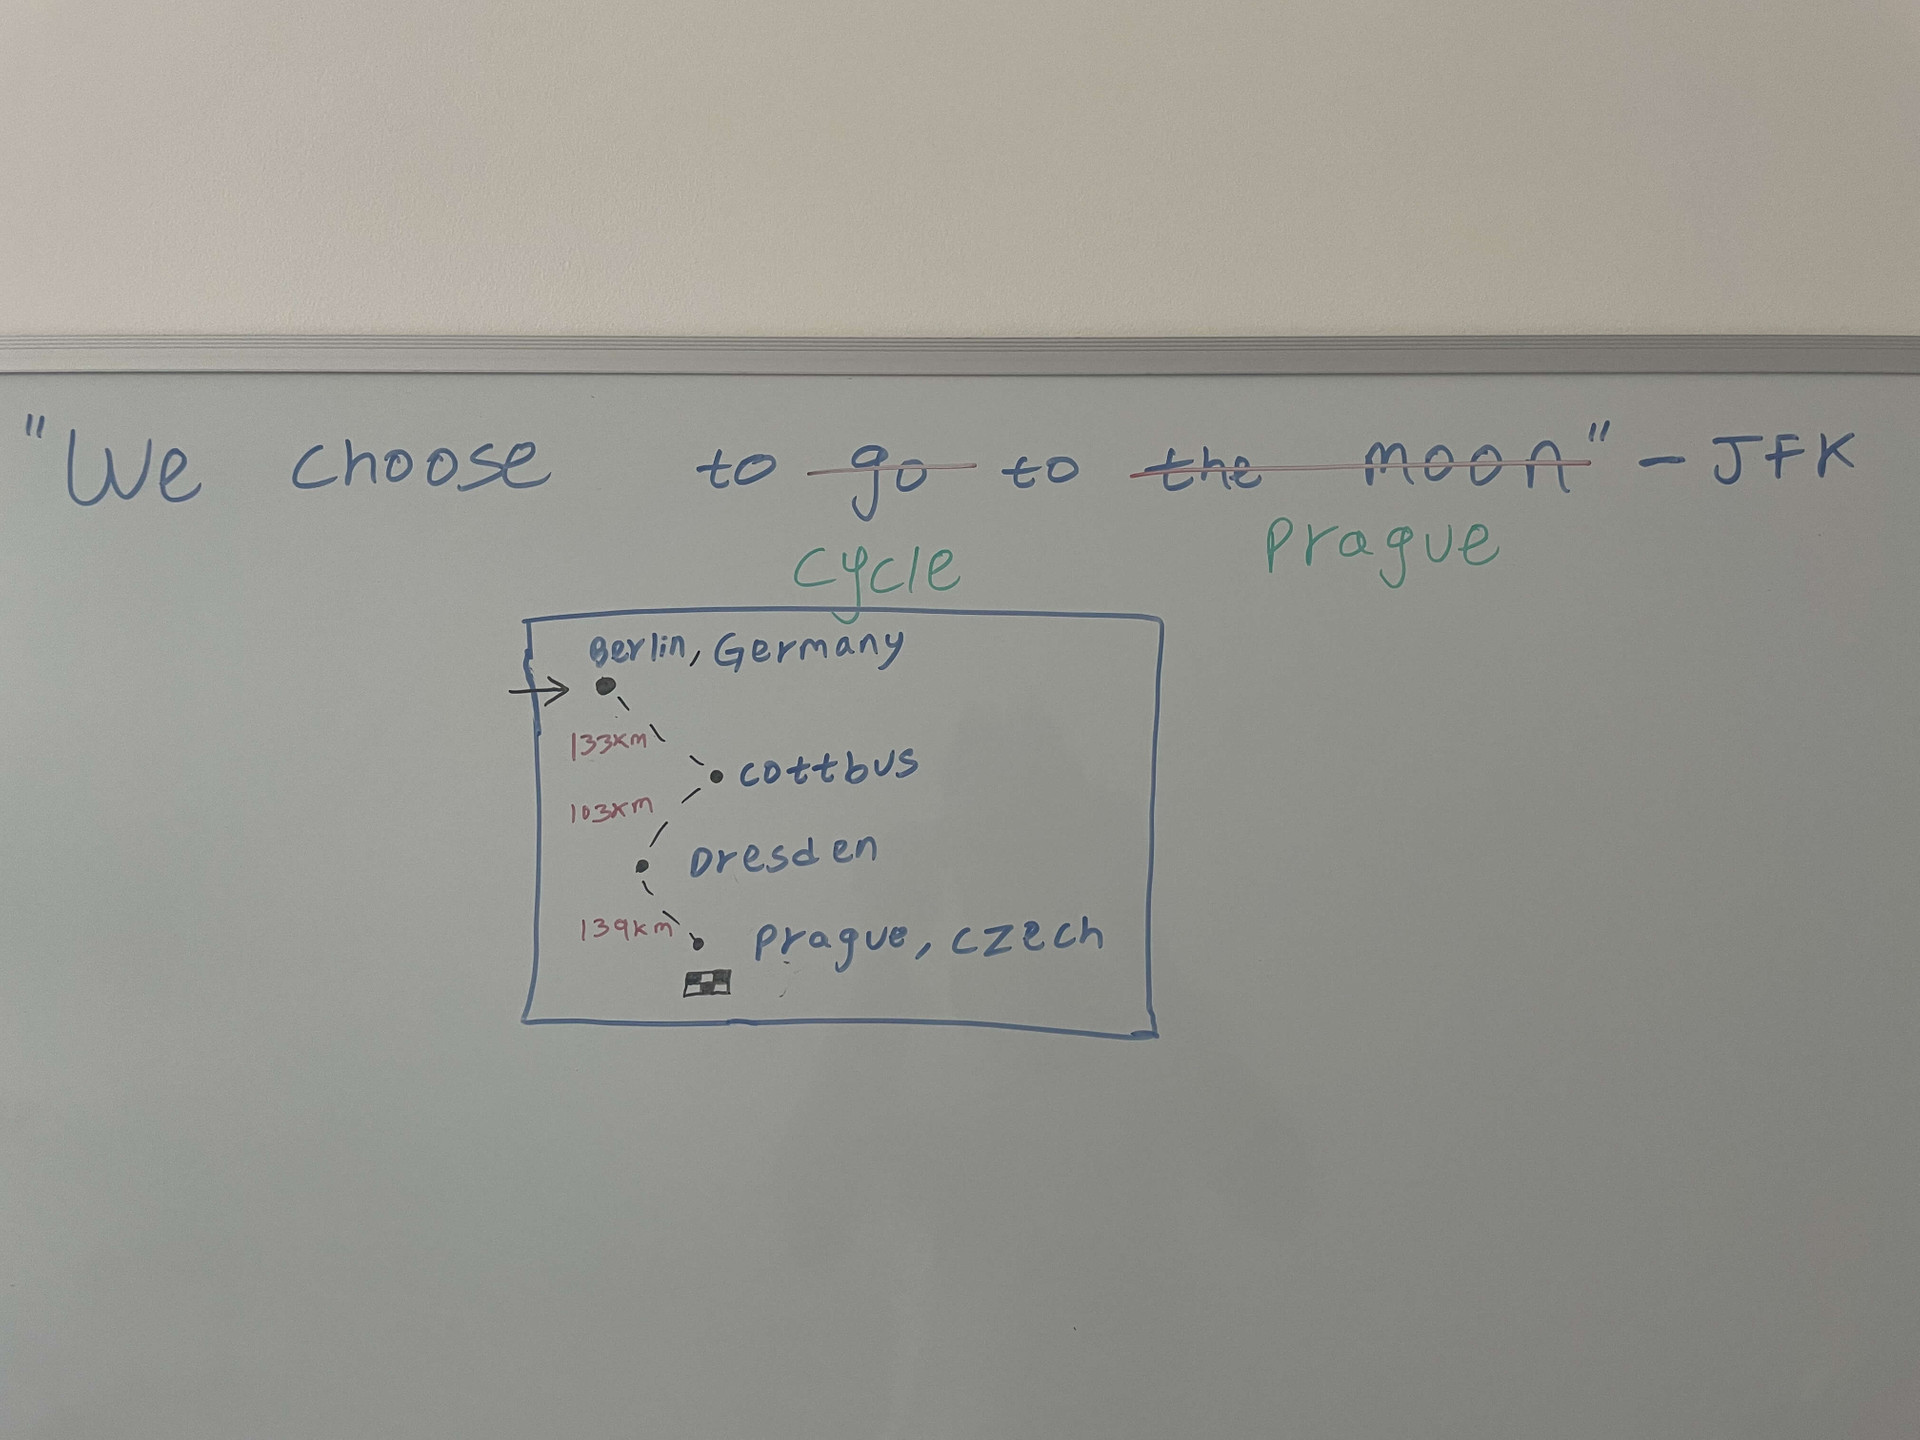 "We choose to go to the moon" - JFK
cycle prague
Berlin, Germany
133km
cottbus
103km
Dresden
139km
prague, czech